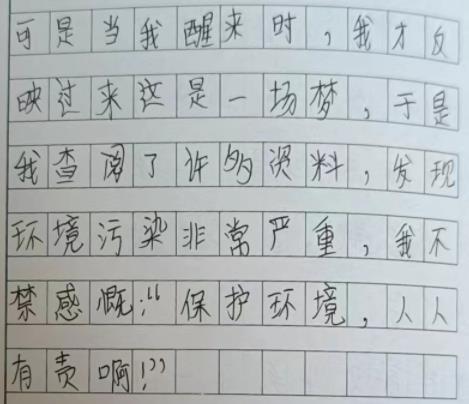 可是当我醒来时，我才反
映过来这是一场梦，于是
我查阅了许多资料，发现
环境污染非常严重，我不
禁感慨：“保护环境，人人
有责啊！”